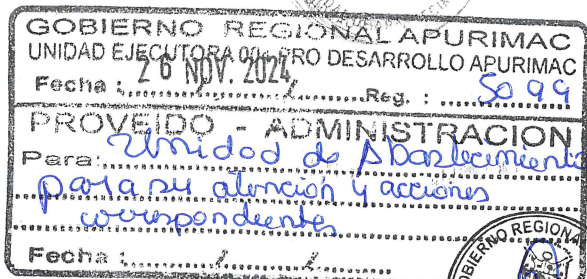 GOBIERNO REGIONAL APURIMAC
UNIDAD EJECUTORA 004 PRO DESARROLLO APURIMAC
Fecha : 26 NOV. 2024 Reg. : 5099
PROVEIDO - ADMINISTRACION
Para: Unidad de Abastecimiento
para su atención y acciones
correspondientes
Fecha :
REGIONA